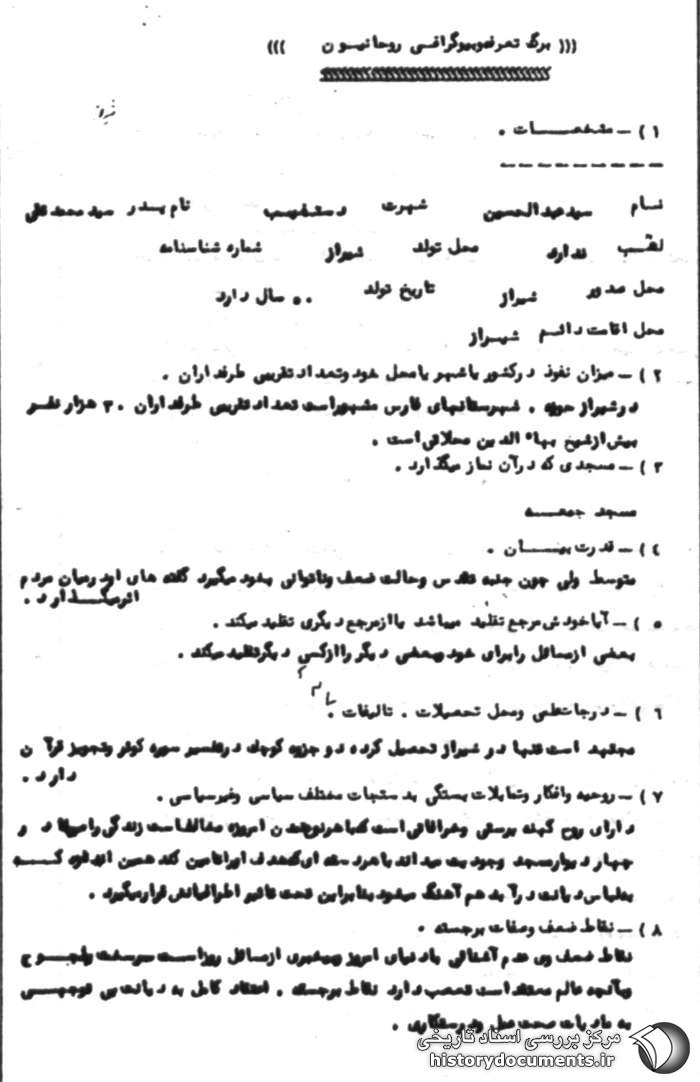 ((( برگ تعرفه و بیوگرافی روحانیون )))
۱ ) – مشخصات .
نام سیدعبدالحسین شهرت دستغیب نام پدر سیدمحمدتقی
لقب ندارد محل تولد شیراز شماره شناسنامه
محل صدور شیراز تاریخ تولد ۵۰ سال دارد
محل اقامت دائم شیراز
۲ ) – میزان نفوذ درکشور یاشهر یامحل خود وتعداد تقریبی طرفداران .
درشیراز حومه . شهرستانهای فارس مشهوراست تعداد تقریبی طرفداران ۳۰ هزار نفر
بیش ازشیخ بهاء الدین محلاتی است .
۳ ) – مسجدی که درآن نماز میگذارد .
مسجد جمعه
٤ ) – قدرت بیان .
متوسط ولی چون جنبه تقدس وحالت ضعف وناتوانی بخود میگیرد گفته های او درمیان مردم
اثر میگذارد .
٥ ) – آیاخودش مرجع تقلید میباشد یاازمرجع دیگری تقلید میکند .
بعضی ازمسائل رابرای خود وبعضی دیگر راازکسی دیگرتقلید میکند .
٦ ) – درجات علمی ومحل تحصیلات . تالیفات .
مجتهد است تنها در شیراز تحصیل کرده دو جزوه کوچک درتفسیر سوره کوثر وتجویز قرآن
دارد .
۷ ) – روحیه وافکار وتمایلات بستگی بدستجات مختلف سیاسی وغیرسیاسی .
دارای روح کهنه پرستی وخرافاتی است که باهرنوع تمدن امروزه مخالف است زندگی را میان در و
چهار دیوارمسجد وجودیت میداند باهردسته ای که هدف اوراتامین کند همین اندازه که
بلباس دیانت درآید هم آهنگ میشود بنابراین تحت تاثیر اطرافیانش قرارمیگیرد .
۸ ) – نقاط ضعف وصفات برجسته .
نقاط ضعف وی عدم آشنائی بادنیای امروز وبیخبری ازمسائل روزاست سرسخت ولجوج
وبآنچه عالم معتقد است تعصب دارد نقاط برجسته . اعتقاد کامل به دیانت بی توجهی
به مادیات صحت عمل ودرستکاری .
مرکز بررسی اسناد تاریخی
historydocuments.ir